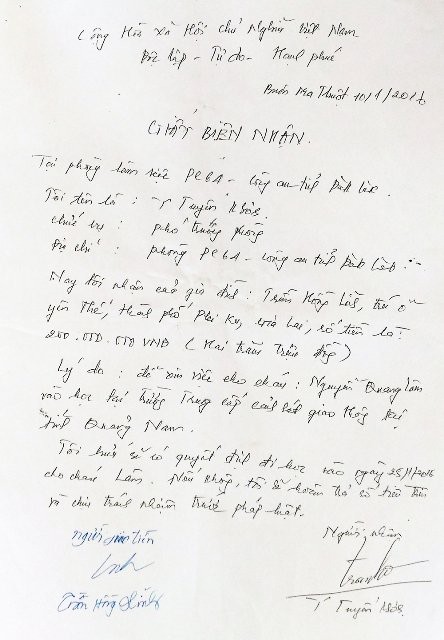 Cộng Hòa xã Hội chủ Nghĩa Việt Nam
Độc lập - Tự do - Hạnh phúc
Buôn Ma Thuột 10/1/2016
GIẤY BIÊN NHẬN.
Tại phòng làm việc PC61 - công an tỉnh Đắk Lắk.
Tôi tên là : Y Tuyên
chức vụ : phó trưởng phòng
Địa chỉ : phòng PC61 - công an tỉnh Đắk Lắk.
Nay tôi nhận của gia đình : Trần Hồng, trú ở
yên Thế, thành phố Plei Ku, Gia Lai, số tiền là:
200.000.000 VNĐ (Hai trăm triệu đồng)
Lý do : để xin việc cho cháu : Nguyễn Quang Lâm
vào học tại trường Trung cấp cảnh sát giao thông tại
tỉnh Quảng Nam.
Tôi hứa sẽ có quyết định đi học vào ngày /1/2016
cho cháu Lâm. Nếu không, tôi sẽ hoàn trả số tiền trên
và chịu trách nhiệm trước pháp luật.
người giao tiền
Người nhận
Trần Hồng
Y Tuyên